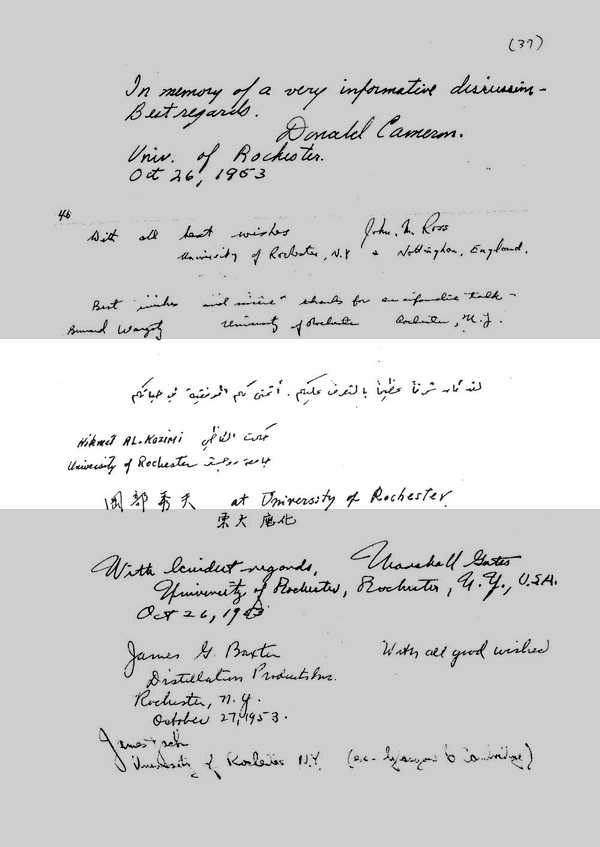 (37)
In memory of a very informative discussion -
Best regards.
Donald Cameron.
Univ. of Rochester.
Oct 26, 1953
46
With all best wishes John. M. Ross
University of Rochester, N.Y & Nottingham, England.
Best wishes and sincere thanks for an informative talk -
University of Rochester Rochester, N.Y.
لقد شرفاً عظيماً بالتعرف عليكم. أتمنى لكم الموفقية في حياتكم
Hikmet AL-Kozimi حكمت
University of Rochester جامعة
岡部 夫 at University of Rochester.
東大 応化
With kindest regards, Marshall Gates
University of Rochester, Rochester, N.Y., U.S.A.
Oct 26, 1953
James G. Baxter With all good wishes
Distillation Products Inc.
Rochester, N.Y.
October 27, 1953.
James
University of Rochester N.Y. (ex- Glasgow & Cambridge)